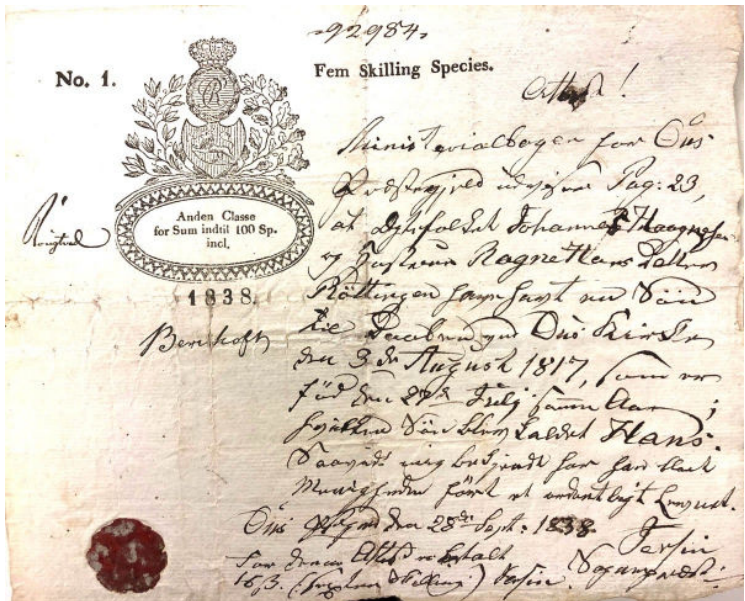 92984.
No. 1.
Fem Skilling Species.
Attest!
CR
Anden Classe
for Sum indtil 100 Sp.
incl.
1838.
Ministerialbogen for Ous
Præstegjeld udviser Pag: 23,
at Ægtefolket Johannes Haagnesen
og Hustrue Ragne Hans Datter
Röttingen have havt en Sön
til Daaben ved Ous Kirke
den 3de August 1817, som er
föd den 27de July samme Aar;
hvilken Sön blev kaldet Hans.
Saavidt mig bekjendt har han blant
Menigheden fört et ordentligt Levnet.
Ous Præstegd den 28de Sept: 1838.
For denne Attest er betalt
16 β. (Sexten Skilling)
Sognepræst.